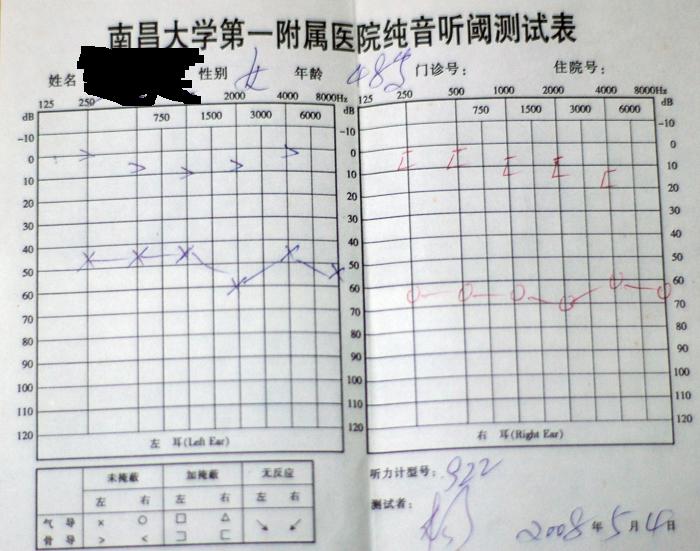 南昌大学第一附属医院纯音听阈测试表
姓名 性别 女 年龄 48岁 门诊号： 住院号：
125 250 2000 4000 8000Hz 125 250 500 1000 2000 4000 8000Hz
dB 750 1500 3000 6000 dB 750 1500 3000 6000 dB
-10 -10 -10
0 0 0
10 10 10
20 20 20
30 30 30
40 40 40
50 50 50
60 60 60
70 70 70
80 80 80
90 90 90
100 100 100
110 110 110
120 120 120
左 耳(Left Ear) 右 耳(Right Ear)
未掩蔽 加掩蔽 无反应
左 右 左 右 左 右
气 导 × ○ □ △ ↘ ↙
骨 导 > < ⊐ ⊏
听力计型号： 922
测试者：
2008年5月4日